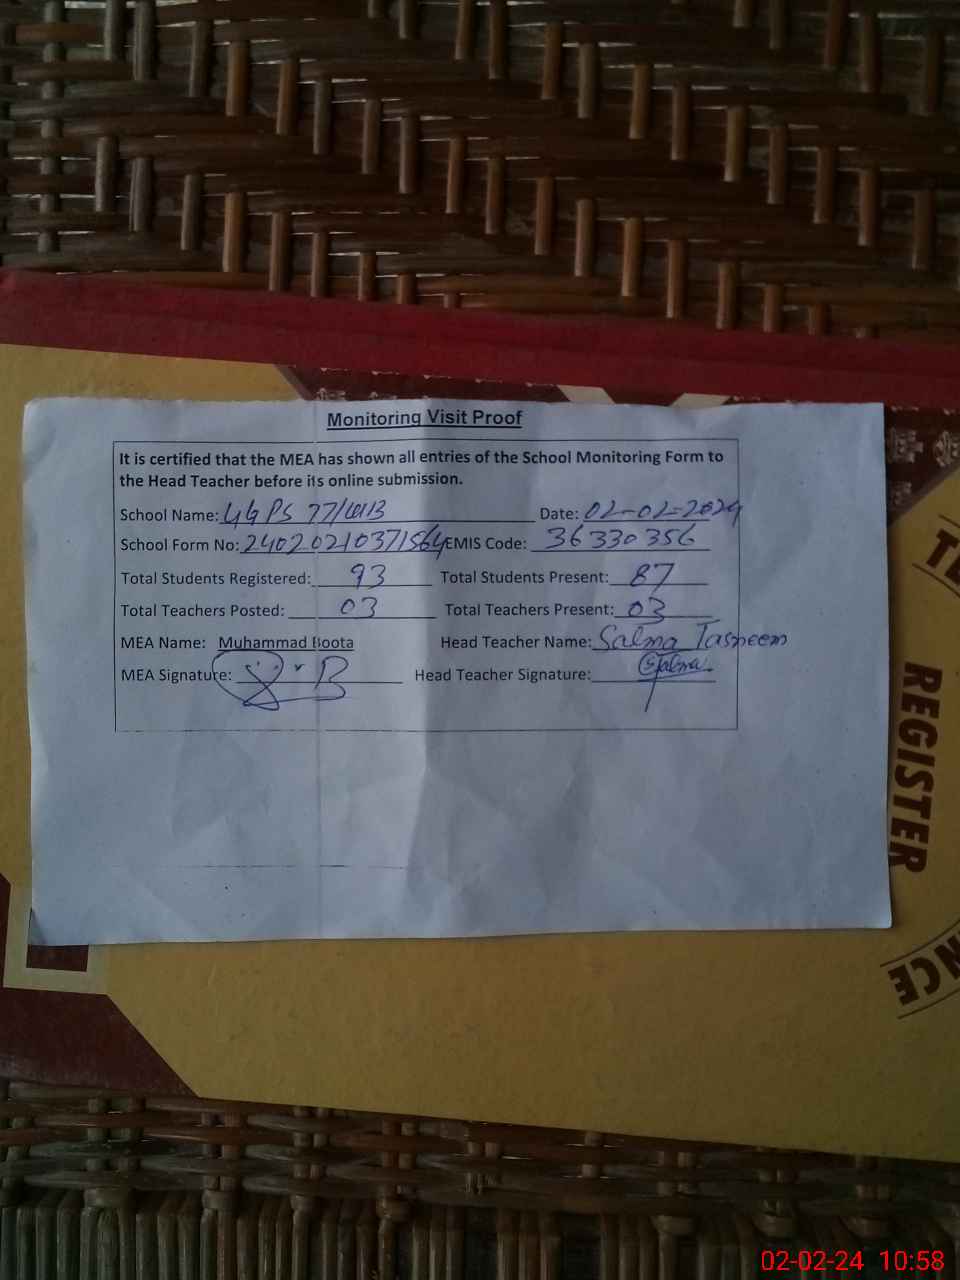 Monitoring Visit Proof
It is certified that the MEA has shown all entries of the School Monitoring Form to
the Head Teacher before its online submission.
School Name: GGPS 77/WB Date: 02-02-2024
School Form No: 24020210371564 EMIS Code: 36330356
Total Students Registered: 93 Total Students Present: 87
Total Teachers Posted: 03 Total Teachers Present: 03
MEA Name: Muhammad Boota Head Teacher Name: Salma Tasneem
MEA Signature: Head Teacher Signature: Salma
REGISTER
02-02-24 10:58